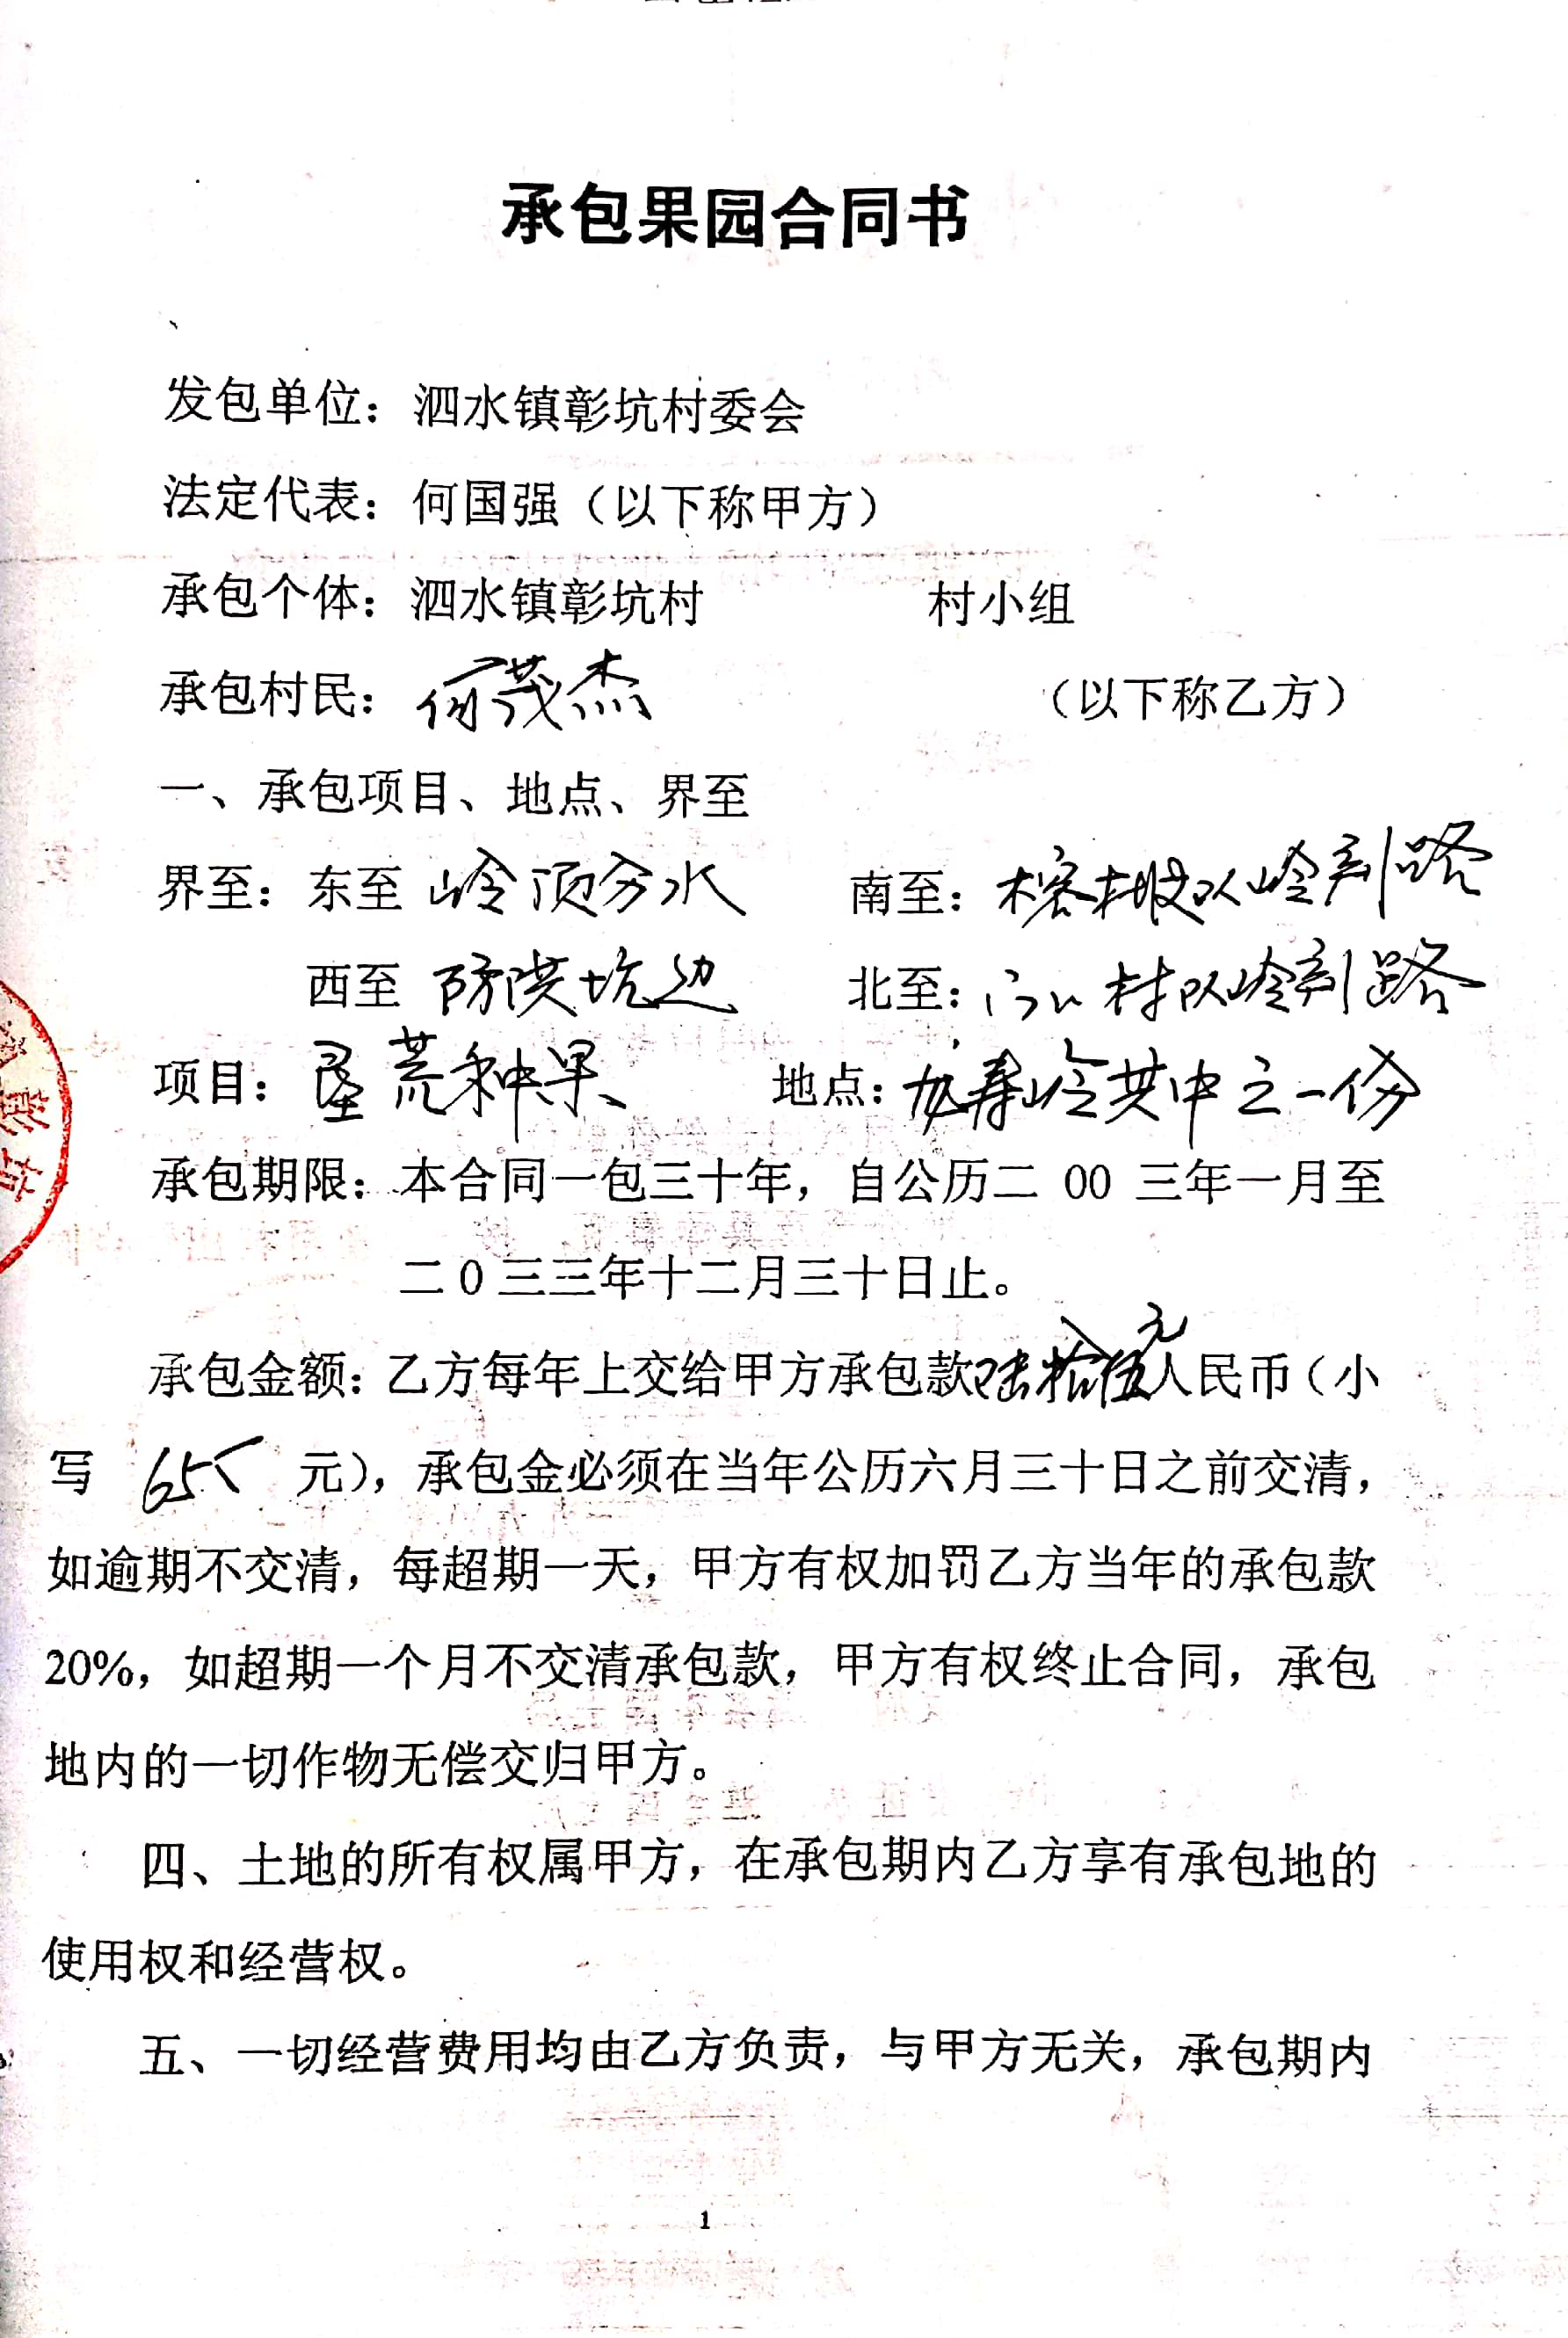 承包果园合同书
发包单位：泗水镇彰坑村委会
法定代表：何国强（以下称甲方）
承包个体：泗水镇彰坑村 村小组
承包村民：何茂杰 （以下称乙方）
一、承包项目、地点、界至
界至：东至 岭顶分水 南至：榕树坡队岭剎路
西至 防洪坑边 北至： 村队岭剎路
项目：垦荒种果 地点： 寿岭其中之一份
承包期限：本合同一包三十年，自公历二 00 三年一月至
二0三三年十二月三十日止。
承包金额：乙方每年上交给甲方承包款陆拾伍元人民币（小
写 65 元），承包金必须在当年公历六月三十日之前交清，
如逾期不交清，每超期一天，甲方有权加罚乙方当年的承包款
20%，如超期一个月不交清承包款，甲方有权终止合同，承包
地内的一切作物无偿交归甲方。
四、土地的所有权属甲方，在承包期内乙方享有承包地的
使用权和经营权。
五、一切经营费用均由乙方负责，与甲方无关，承包期内
1